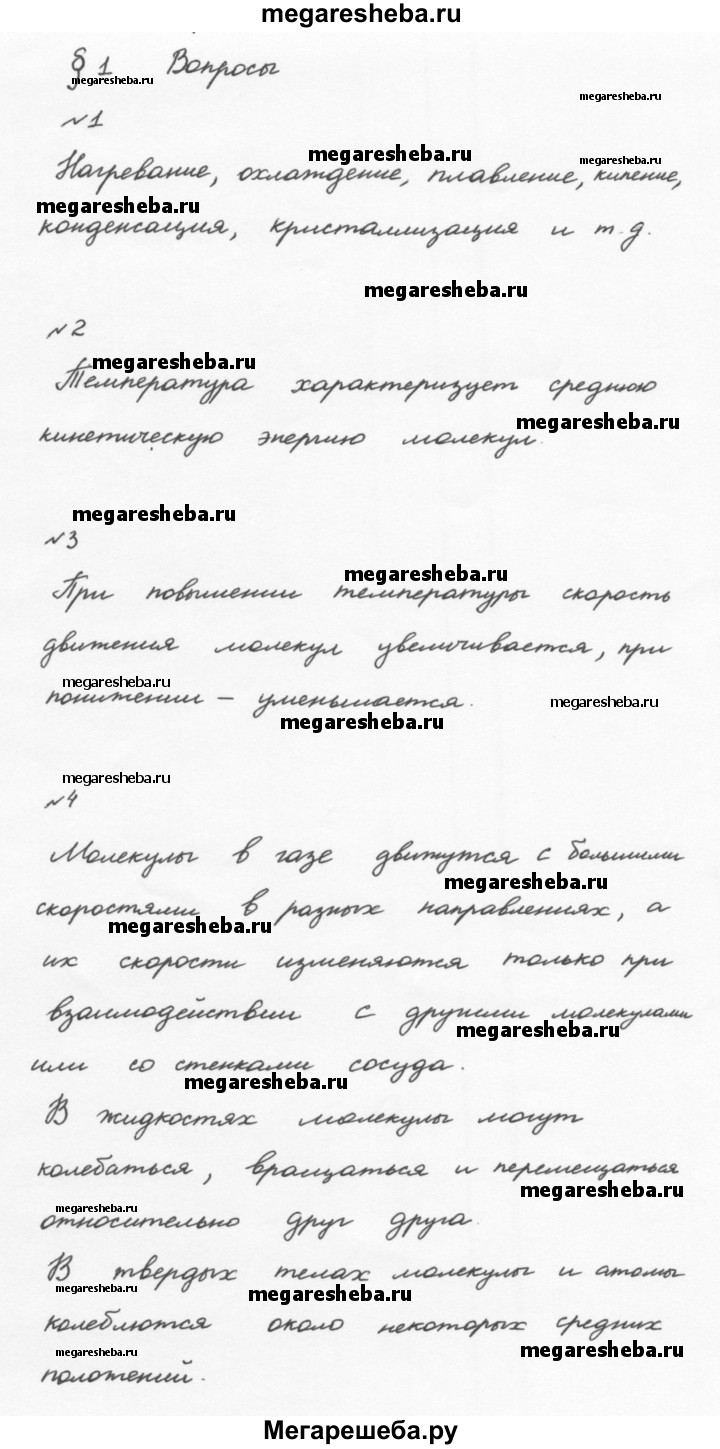 megaresheba.ru
§ 1 Вопросы
megaresheba.ru
megaresheba.ru
№1
megaresheba.ru
megaresheba.ru
Нагревание, охлаждение, плавление, кипение,
megaresheba.ru
конденсация, кристаллизация и т.д.
megaresheba.ru
№2
megaresheba.ru
Температура характеризует среднюю
megaresheba.ru
кинетическую энергию молекул.
megaresheba.ru
№3
megaresheba.ru
При повышении температуры скорость
движения молекул увеличивается, при
megaresheba.ru
понижении – уменьшается.
megaresheba.ru
megaresheba.ru
megaresheba.ru
№4
Молекулы в газе движутся с большими
megaresheba.ru
скоростями в разных направлениях, а
megaresheba.ru
их скорости изменяются только при
взаимодействии с другими молекулами
megaresheba.ru
или со стенками сосуда.
megaresheba.ru
В жидкостях молекулы могут
колебаться, вращаться и перемещаться
megaresheba.ru
megaresheba.ru
относительно друг друга.
В твердых телах молекулы и атомы
megaresheba.ru
megaresheba.ru
колеблются около некоторых средних
megaresheba.ru
megaresheba.ru
положений.
Мегарешеба.ру